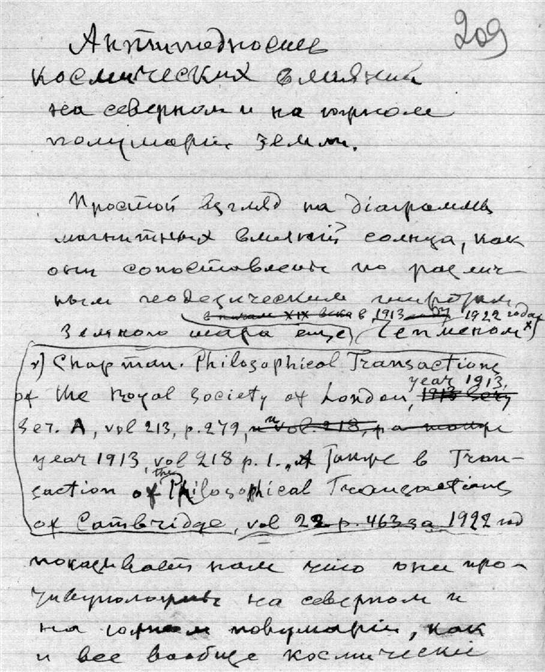 209
Антиподносиев
космических влияний
на северном и на южном
полушарiи земли.
Простой взгляд на дiаграммы
магнитных влиянiй солнца, как
они сопоставлены по различ-
ным геодезическим широтам
в 1913 1922 годах
земного шара еще Чепменом x)
x) Chapman. Philosophical Transactions
year 1913,
of the Royal Society of London, 1913 Ser,
Ser. A, vol 213, p. 279, vol. 218, р а также
year 1913, vol 218 p. 1. А также в Tran-
the
saction of Philosophical Transactions
of Cambridge, vol 22 p. 463 за 1922 год
показывает нам что они про-
тивуположны на северном и
на южном полушарiи, как
и все вообще космическiе